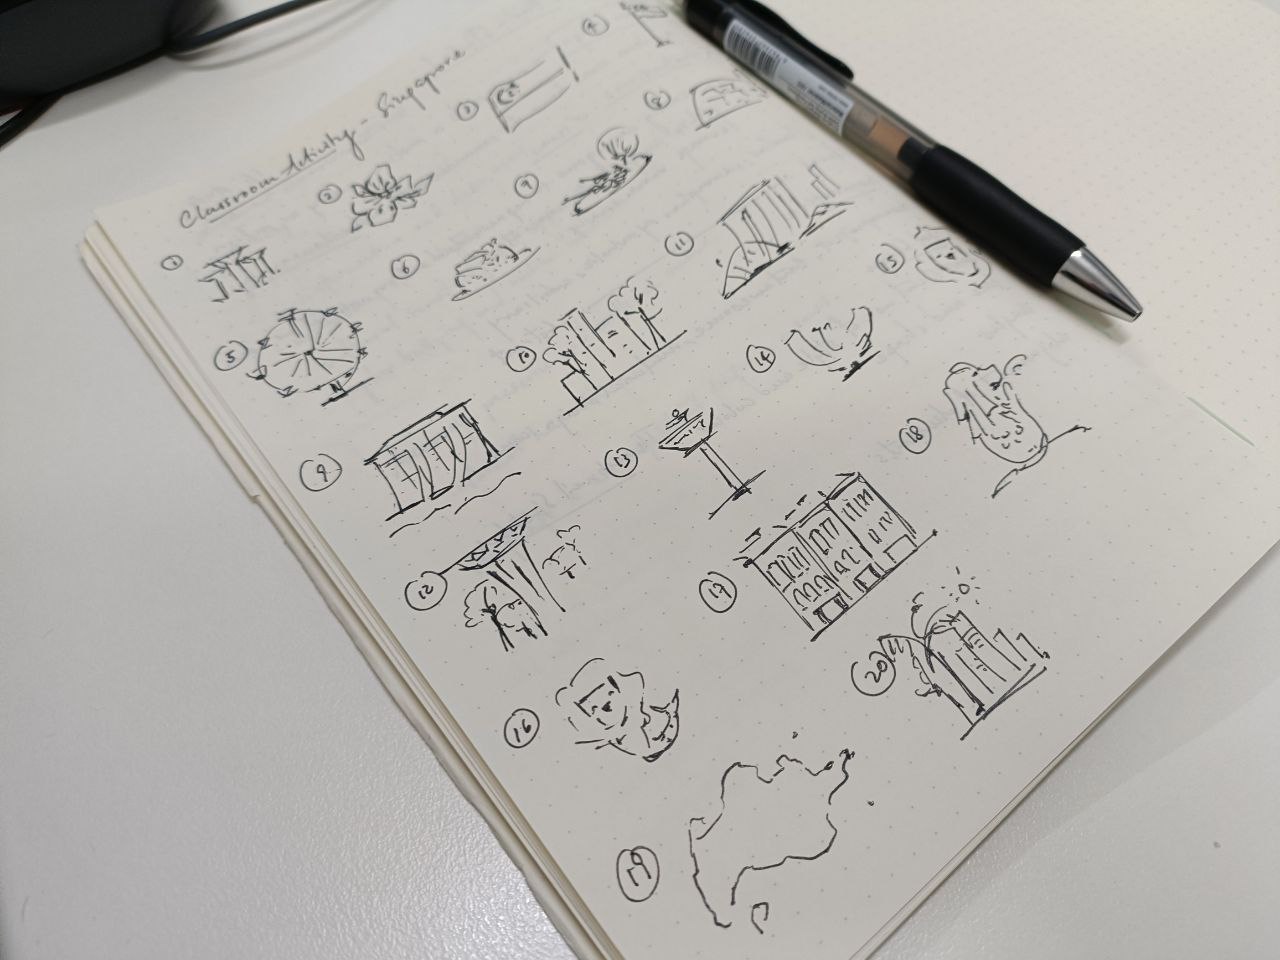 Classroom Activity - Singapore
1
2
3
4
5
6
7
8
9
10
11
12
13
14
15
16
17
18
19
20